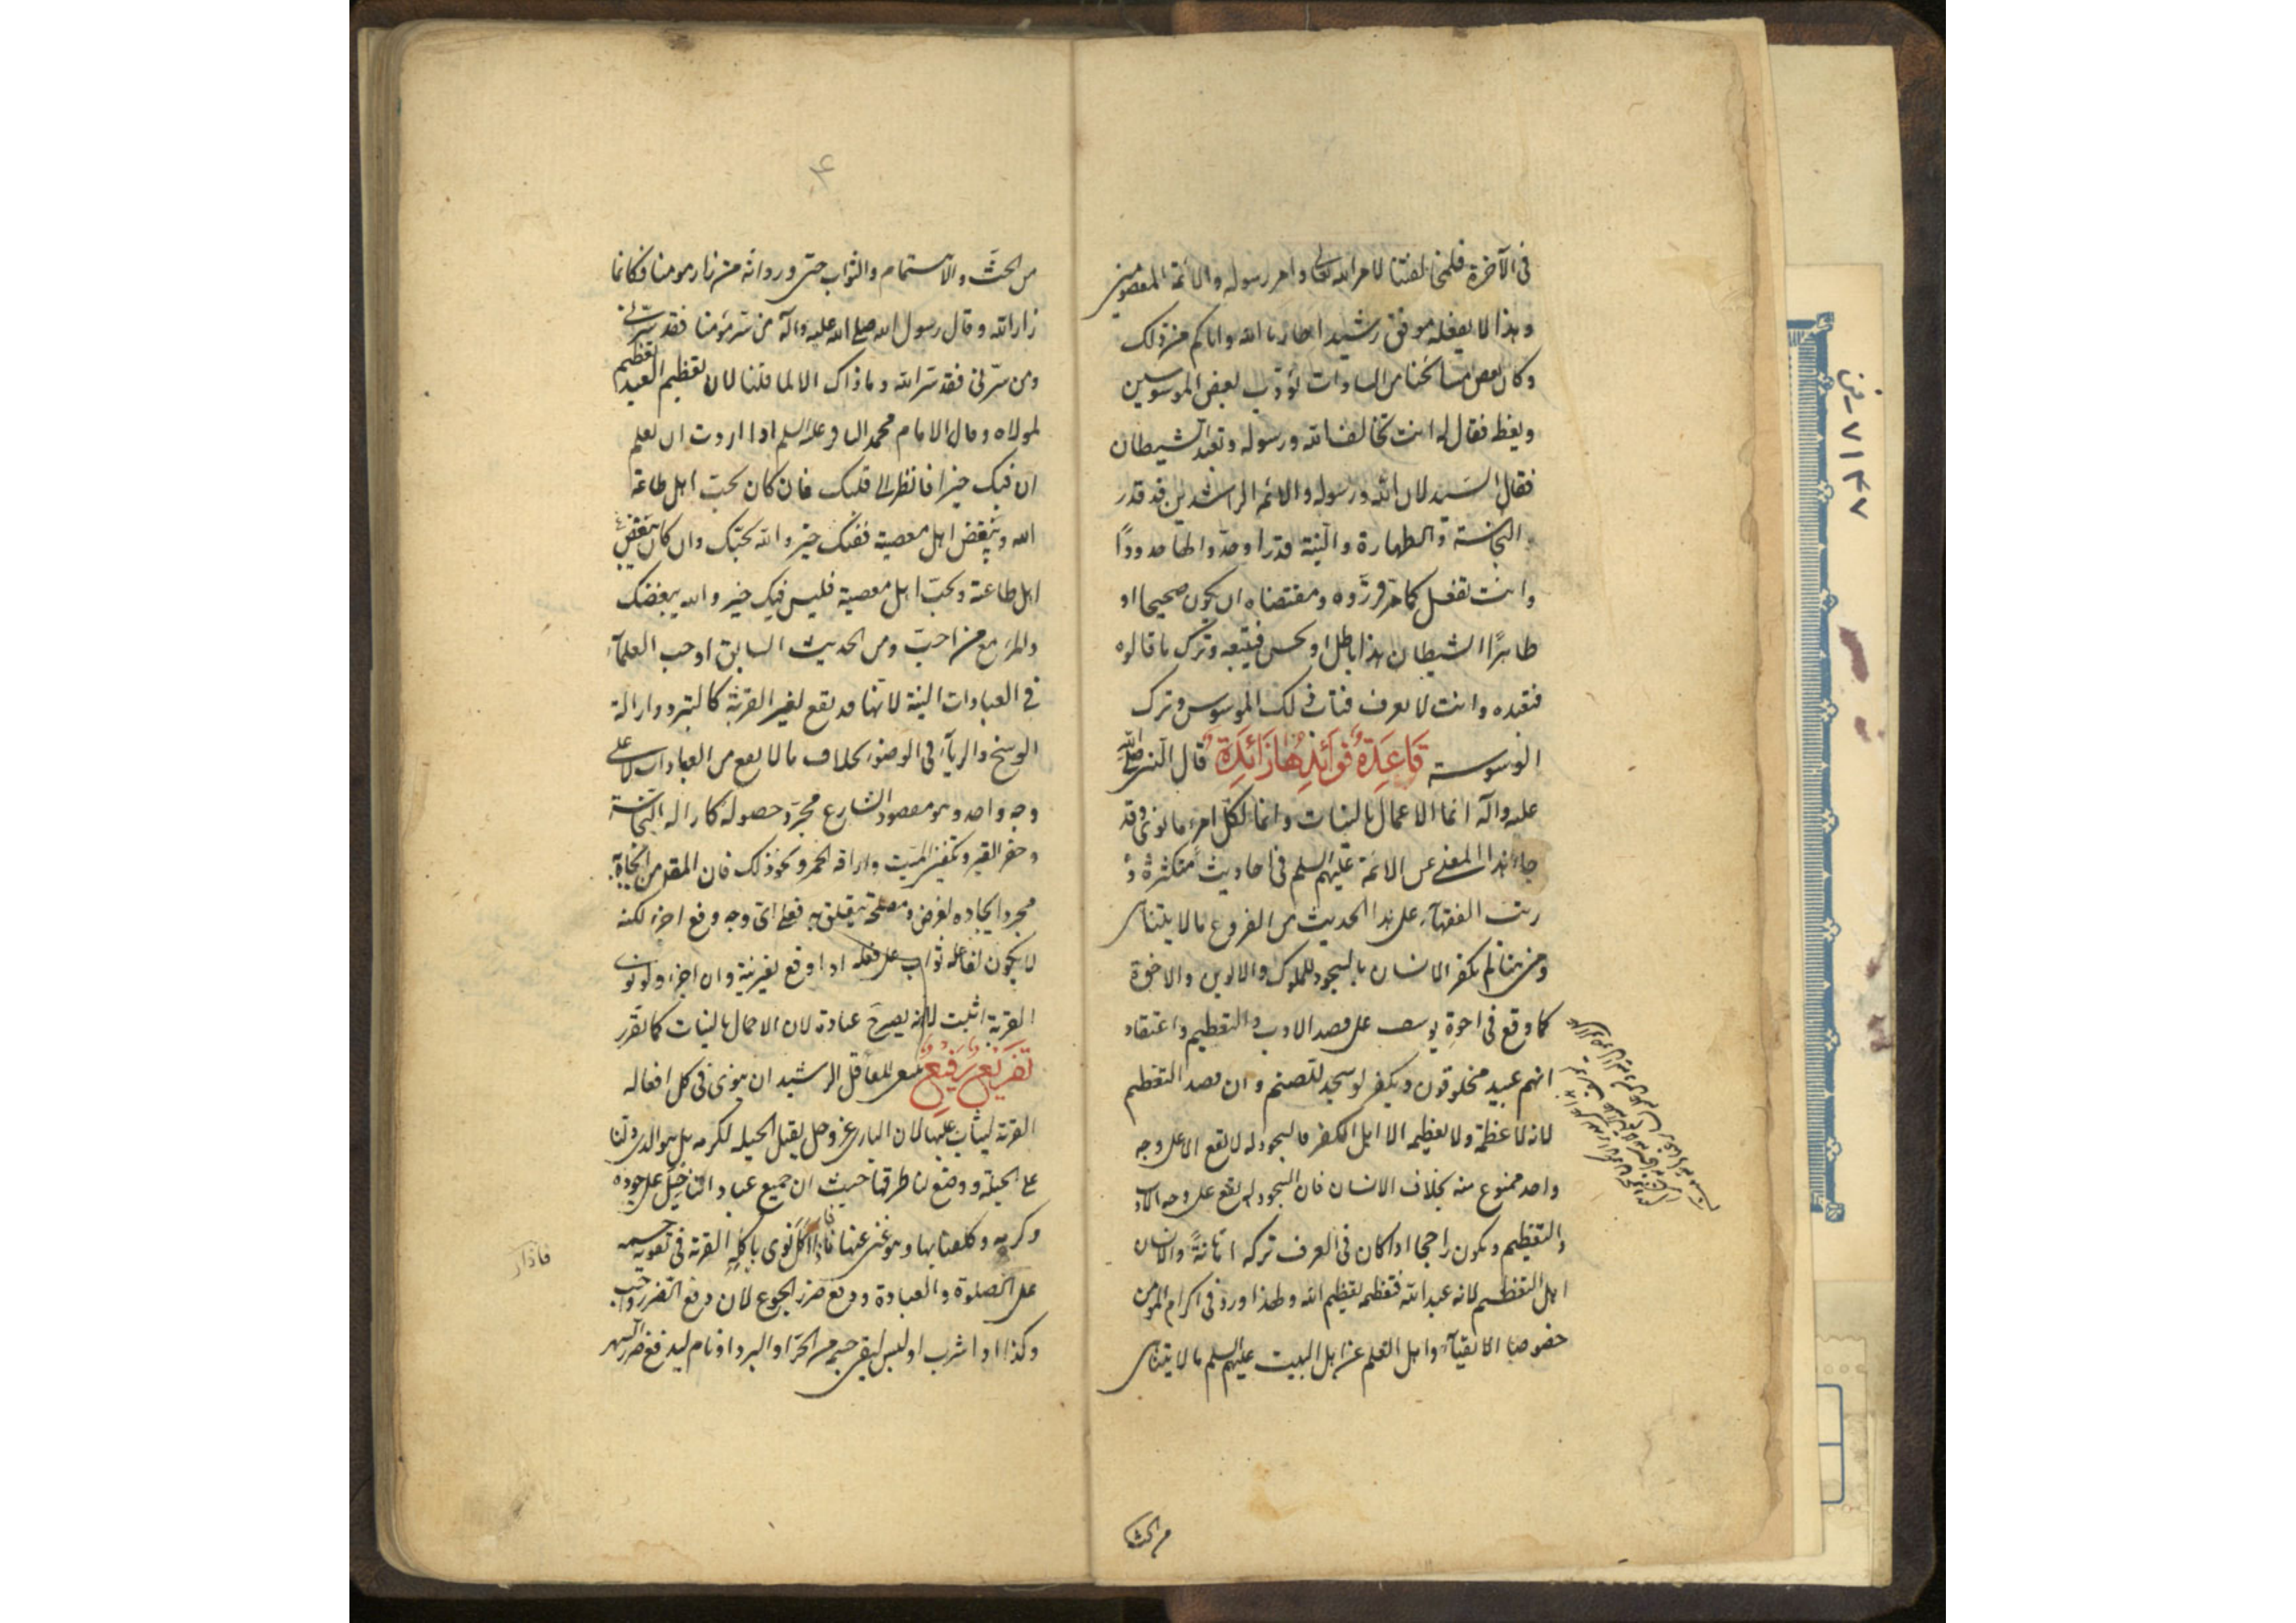 في الآخرة فلمخالفتنا لامر الله تعالى وامر رسوله والائمة المعصومين
وهذا لا يفعله موفق رشيد اجارنا الله واياكم من ذلك
وكان بعض مشائخنا من السادات يؤدب بعض الموسوسين
ويعظه فقال له انت تخالف الله ورسوله وتعبد الشيطان
فقال السيد لان الله ورسوله والائمة الراشدين قد قدر
النجاسة والطهارة والنية قدرا وحدوا لها حدودا
وانت تفعل كما قرروه ومقتضاه ان يكون صحيحا او
طاهرا الشيطان هذا باطل او نجس فتتبعه وتترك ما قالوه
فتعبده وانت لا تعرف فتاب ذلك الموسوس وترك
الوسوسة قاعدة فوائدها زائدة قال النبي صلى الله
عليه وآله انما الاعمال بالنيات وانما لكل امرء ما نوى وقد
جاء هذا المعنى عن الائمة عليهم السلم في احاديث متكثرة و
رتب الفقهاء على هذا الحديث من الفروع ما لا يتناهى
ومن هنا لم يكفر الانسان بالسجود للملوك والابوين والاخوة
كما وقع في اخوة يوسف على قصد الادب والتعظيم واعتقاد
انهم عبيد مخلوقون ويكفر لو سجد للصنم وان قصد التعظيم
لانه لا عظمة له ولا يعظمه الا اهل الكفر فالسجود له لا يقع الا على وجه
واحد ممنوع منه بخلاف الانسان فان السجود له يقع على وجه الادب
والتعظيم ويكون راجحا اذا كان في العرف تركه اهانة والانسان
اهل التعظيم لانه عبد الله فتعظيمه تعظيم الله ولهذا ورد في اكرام المؤمن
خصوصا الاتقياء واهل العلم عن اهل البيت عليهم السلم ما لا يتناهى
من الحث
من الحث والاهتمام والثواب حتى ورد انه من زار مومنا فكانما
زار الله وقال رسول الله صلى الله عليه وآله من سر مؤمنا فقد سرني
ومن سرني فقد سر الله وما ذاك الا لما قلنا لان تعظيم العبد تعظيم
لمولاه وقال الامام محمد الباقر عليه السلم اذا اردت ان تعلم
ان فيك خيرا فانظر الى قلبك فان كان يحب اهل طاعة
الله ويبغض اهل معصيته ففيك خير والله يحبك وان كان يبغض
اهل طاعته ويحب اهل معصيته فليس فيك خير والله يبغضك
والمرء مع من احب ومن الحديث السابق اوجب العلماء
في العبادات النية لانها قد تقع لغير القربة كالتبرد وازالة
الوسخ والرياء في الوضوء بخلاف ما لا يقع من العبادات الا على
وجه واحد وهو مقصود الشارع مجرد حصوله كازالة النجاسة
وحفر القبر وتكفين الميت واراقة الخمر ونحو ذلك فان المقصود من ايجابه
مجرد ايجاده لغرض ومصلحة يتعلق به فعلى اي وجه وقع اجزء لكنه
لا يكون لفاعله ثواب على فعله اذا وقع بغير نية وان اجزء ولو نوى
القربة اثيب لانه يصير ح عبادة لان الاعمال بالنيات كما تقرر
تفريع رفيع ينبغي للعاقل الرشيد ان ينوى في كل افعاله
القربة ليثاب عليها لان الباري عز وجل يقبل الحيلة لكرمه بل هو الذي دلنا
على الحيلة ووضع لنا طرقها حيث ان جميع عباداتنا حيل على جوده
وكرمه وكلفنا بها وهو غني عنها فاذا اكل نوى باكله القربة في تقوية جسمه
على الصلوة والعبادة ودفع ضرر الجوع لان دفع الضرر واجب
وكذا اذا شرب او لبس ليقى جسمه من الحر او البرد او نام ليدفع ضرر السهر